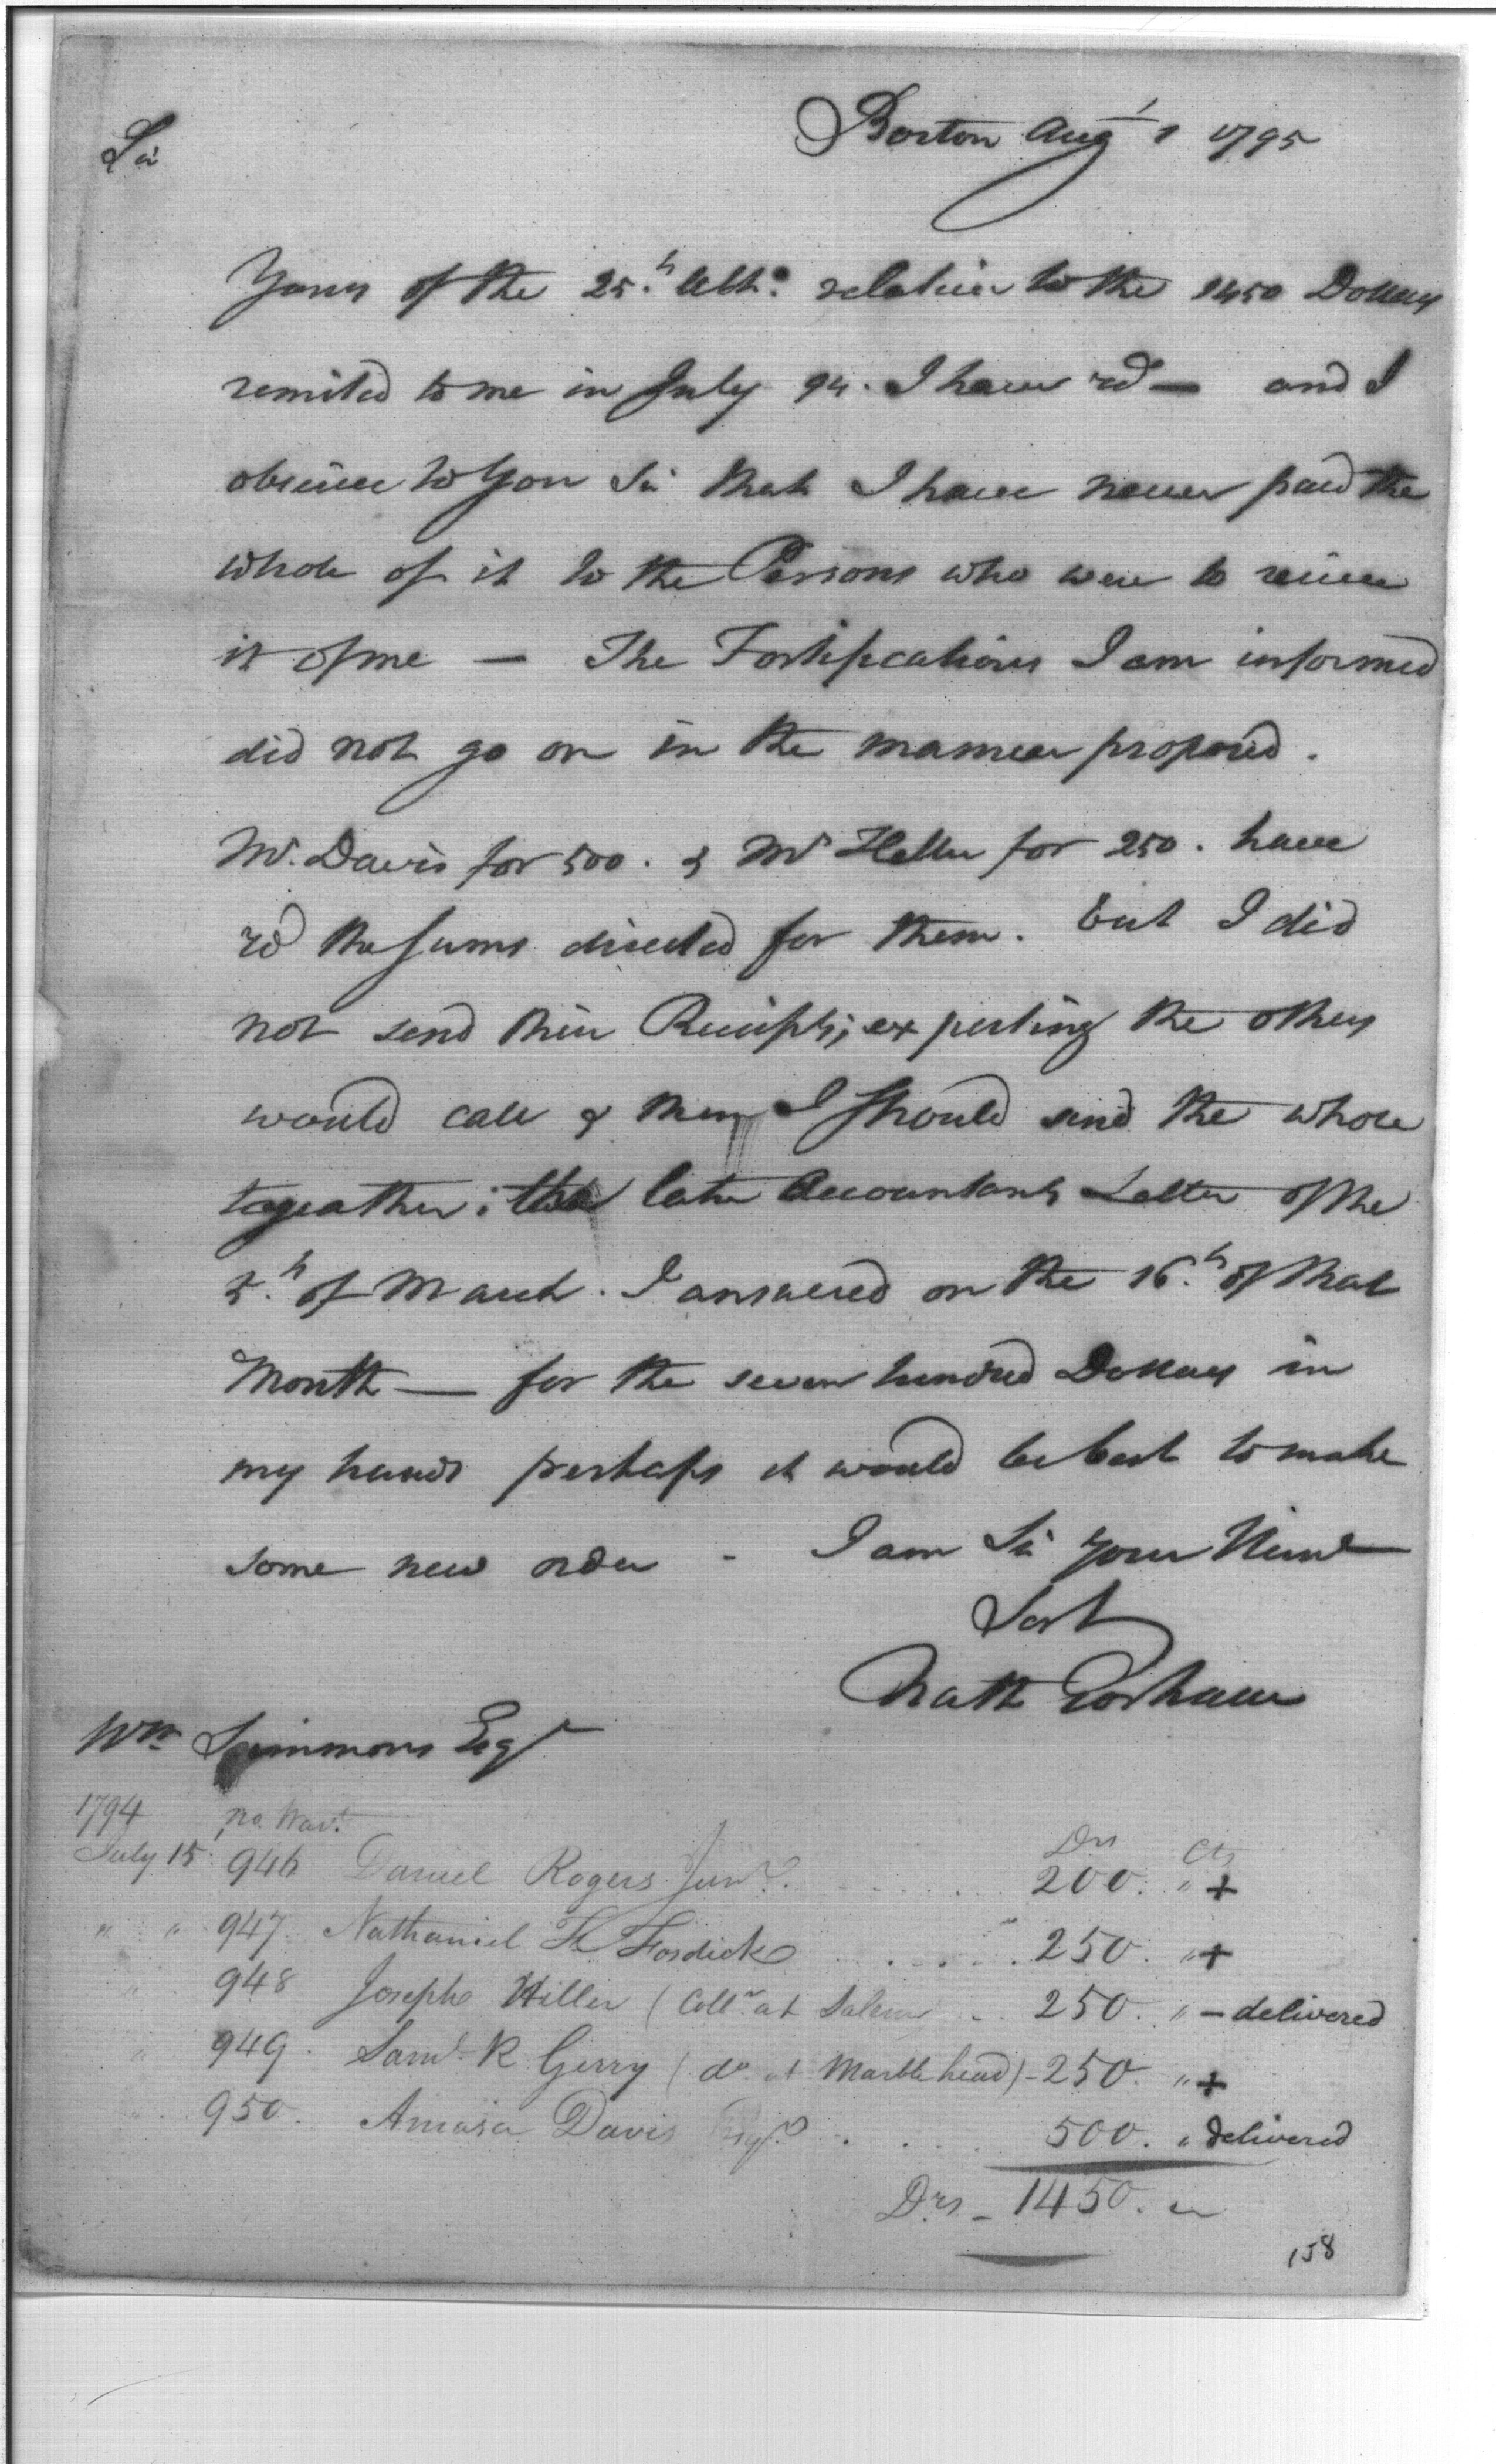 Boston Augt 1 1795
Sir
Yours of the 25.h Ulto. relative to the 1450 Dollars
remited to me in July 94. I have rd — and I
observe to You Sir that I have never paid the
whole of it to the Persons who were to receive
it of me — The Fortifications I am informed
did not go on in the manner proposed.
Mr. Davis for 500. & Mr Heller for 250. have
rd the sums directed for them. but I did
not send their Receipts; expecting the others
would call & then I should send the whole
togeather; the late Accountants Letter of the
5.h of March. I answered on the 16.h of that
Month — for the seven hundred Dollars in
my hands perhaps it would be best to make
some new order - I am Sir your Humb
Sert
Nath Gorham
Wm Simmons Esqr
1794 No. Wart. Drs Cts
July 15. 946 Daniel Rogers Junr. 200. " +
" " 947 Nathaniel F Fosdick 250. " +
" 948 Joseph Hiller (Collr at Salem 250. " - delivered
" 949. Saml R Gerry (do at Marblehead) - 250. " +
" 950. Amasa Davis Esqr. 500. " delivered
Drs - 1450. "
158